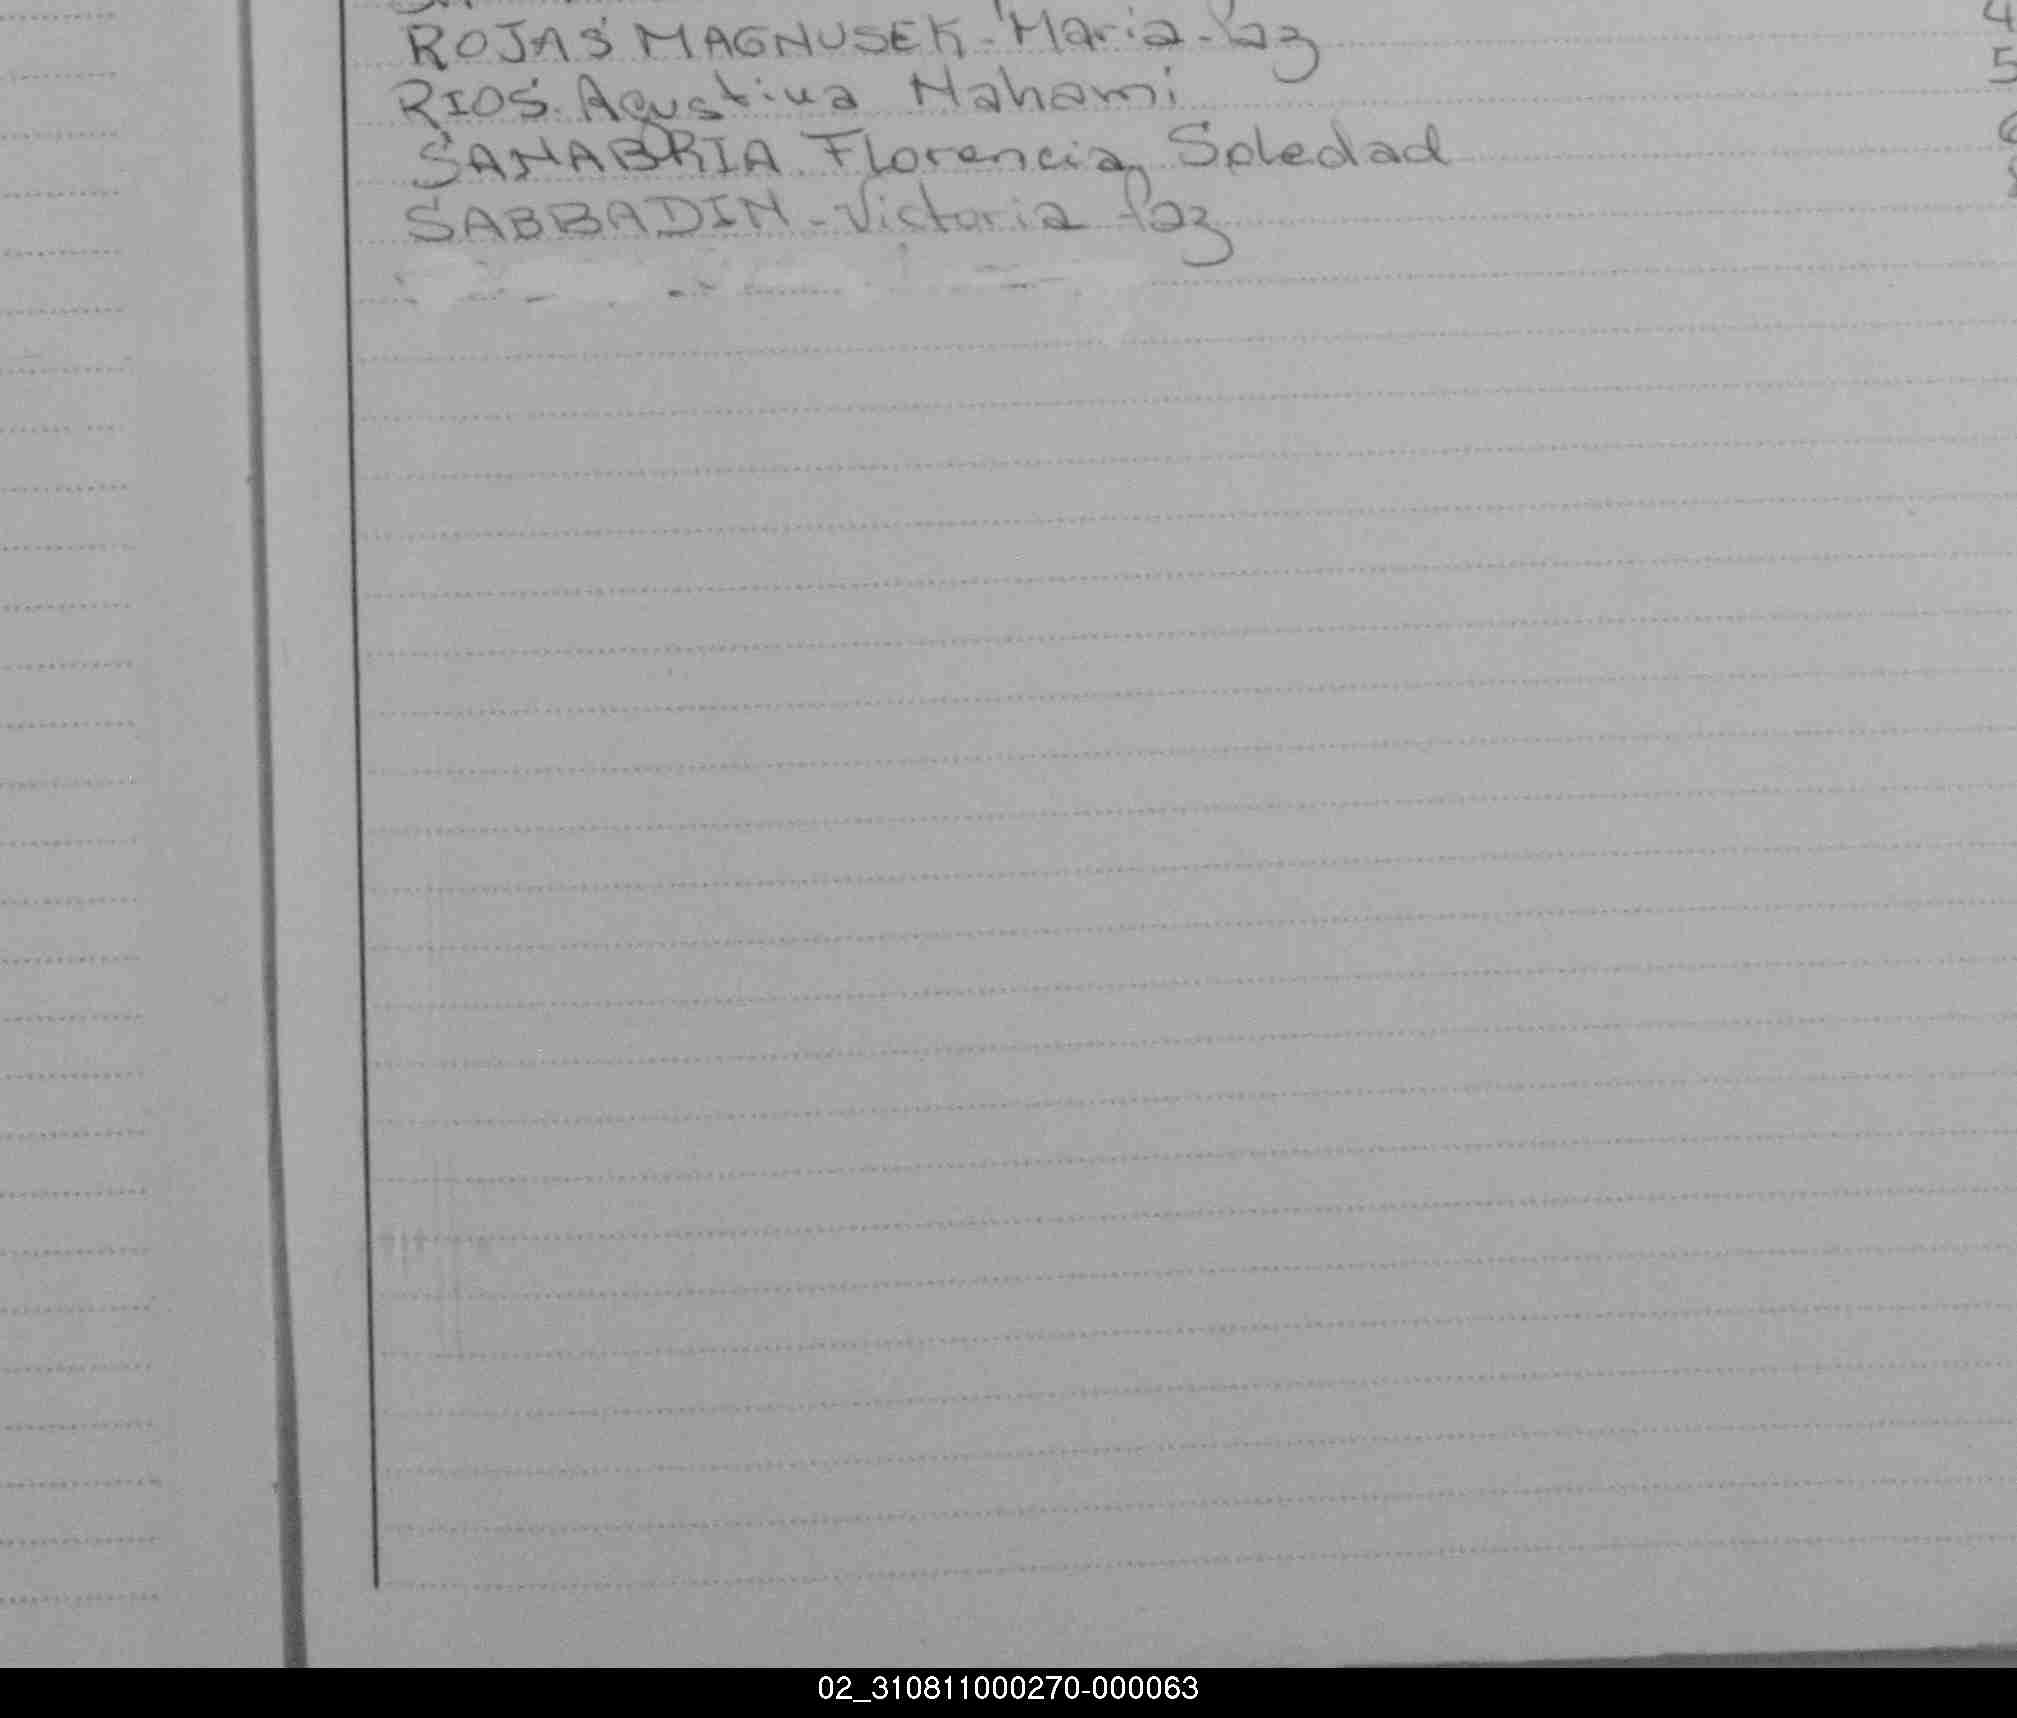 ROJAS MAGNUSEK - Maria - Paz 4
RIOS. Agustina Nahami 5
SANABRIA Florencia Soledad
SABBADIN - Victoria Paz
02_310811000270-000063